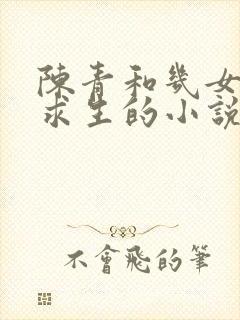 陳青和幾女
求生的小說
不會飛的筆